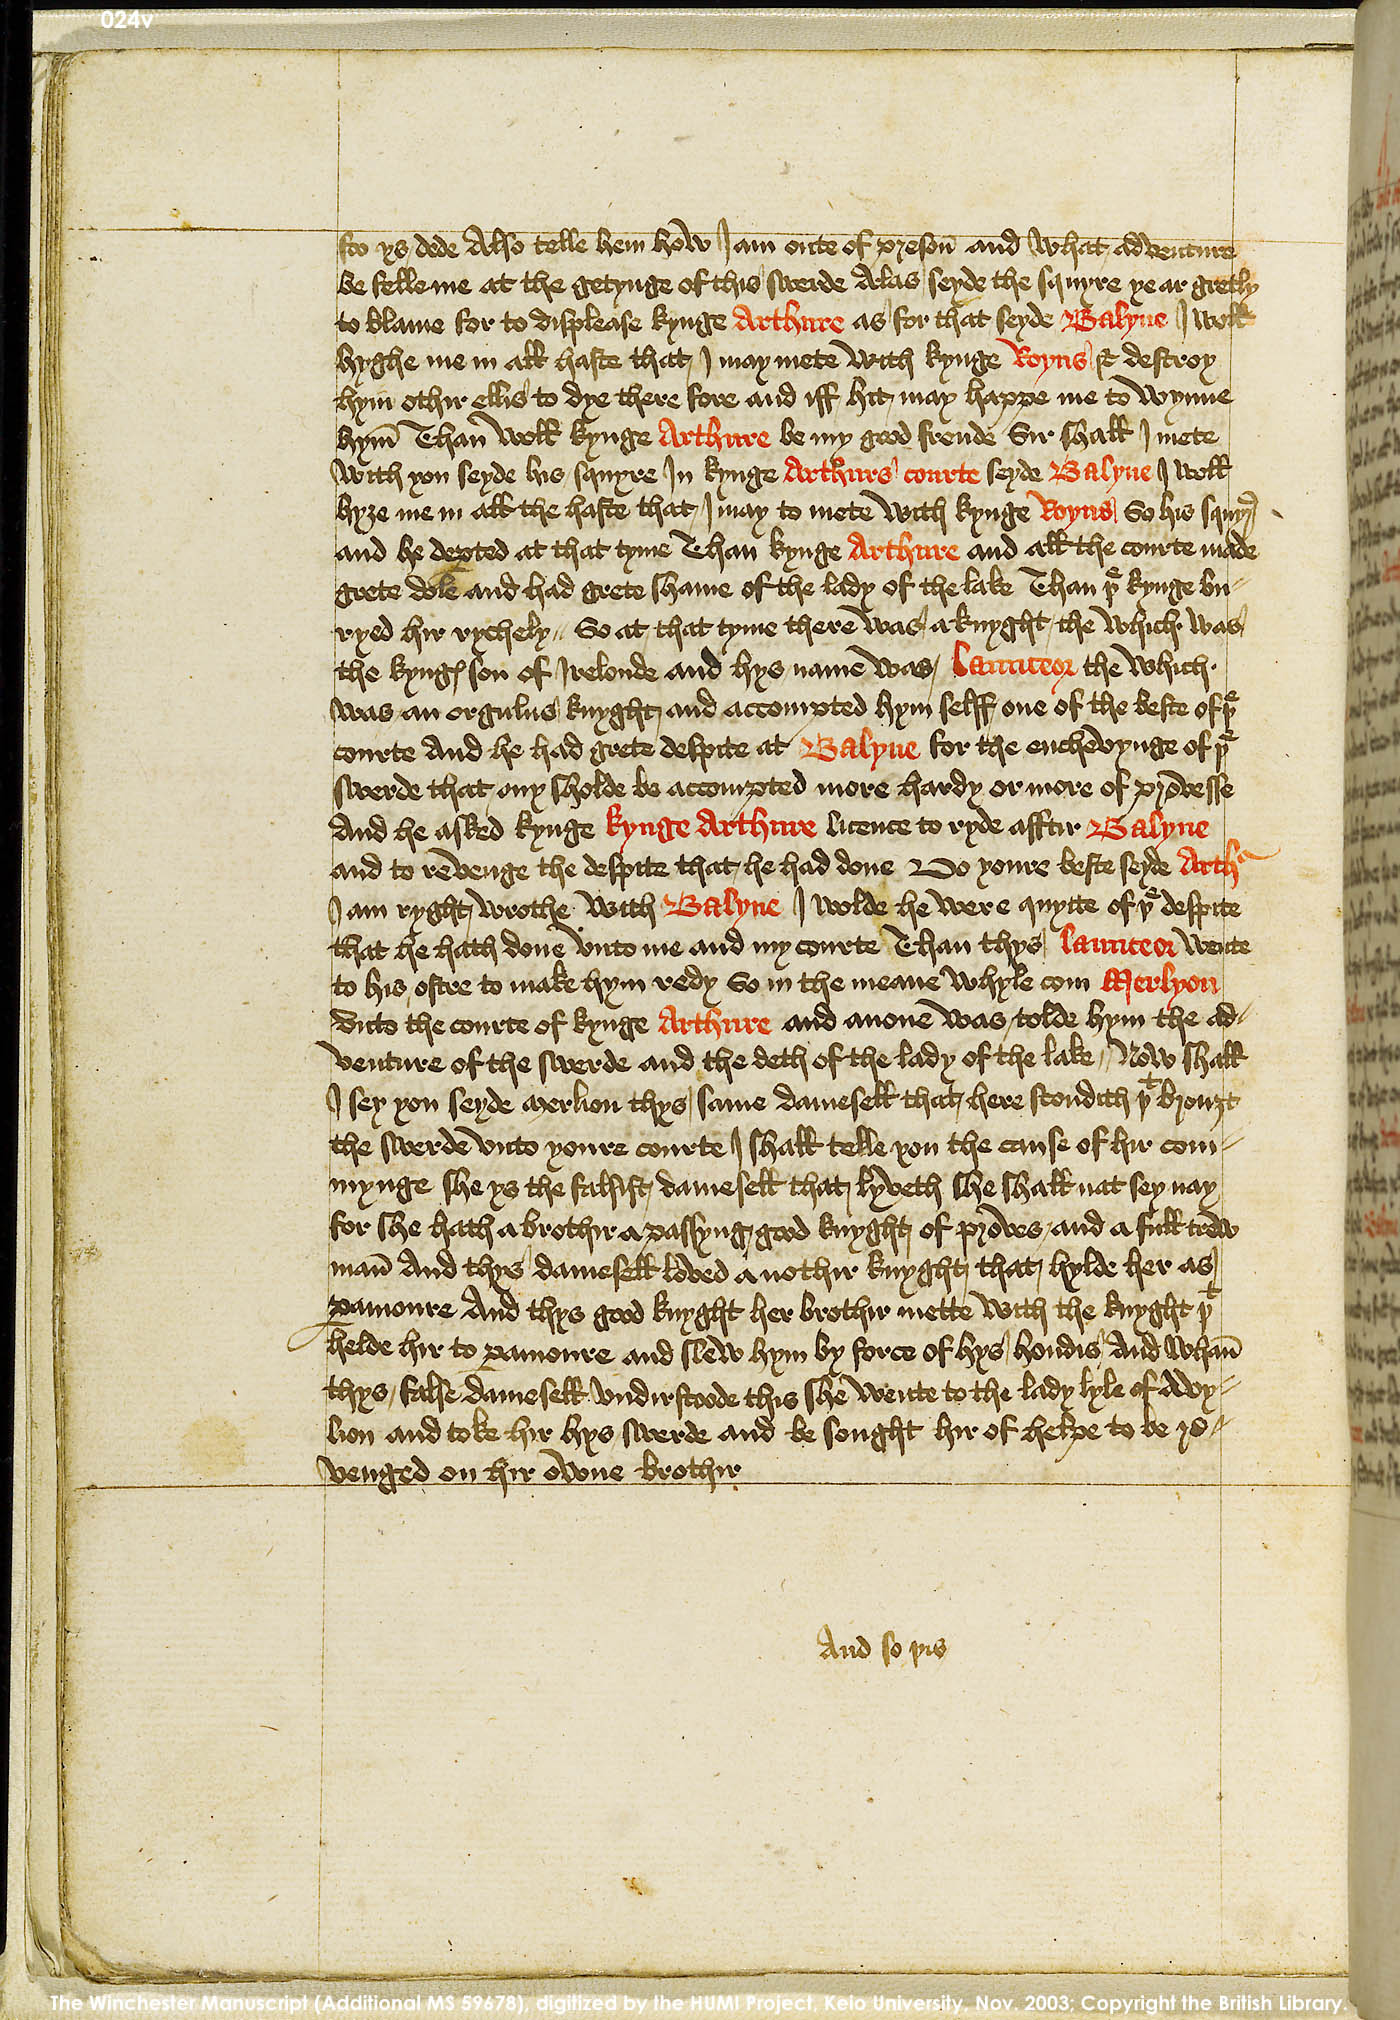 024v
foo ys dede Also telle hem how I am oute of preson̄ and what adventure
be felle me at the getynge of this swerde Alas seyde the squyre ye ar gretly
to blame for to displease kynge Arthure as for that seyde Balyne I woll
hyghe me in all haste that I may mete with kynge Royns & destroy
hym othir ellis to dye there fore and iff hit may happe me to wynne
hym̄ Than woll kynge Arthure be my good frende Sir shall I mete
with you seyde his squyre In kynge Arthurs courte seyde Balyne I woll
hyȝe me in all the haste that I may to mete with kynge Royns So his squyre
and he dep̲ted at that tyme Than kynge Arthure and all the courte made
grete dole and had grete shame of the lady of the lake Than þe kynge bu-
ryed hir rychely // So at that tyme there was a knyght the which was
the kyngꝭ son of Irelonde and hys name was Launceor the which
was an orgulus knyght and accompted hym selff one of the beste of þe
courte And he had grete despite at Balyne for the enchevynge of þe
swerde that ony sholde be accompted more hardy or more of prouesse
And he asked kynge kynge Arthure licence to ryde afftir Balyne
and to revenge the despite that he had done Do youre beste seyde Arthr
I am ryght wrothe with Balyne I wolde he were quytte of þe despite
that he hath done vnto me and my courte Than thys Launceor wente
to his ostre to make hym redy So in the meane whyle com Merlyon
vnto the courte of kynge Arthure and anone was tolde hym the ad-
venture of the swerde and the deth of the lady of the lake // Now shall
I sey you seyde merlion thys same damesell that here stondith þt brouȝt
the swerde vnto youre courte I shall telle you the cause of hir com-
mynge she ys the falsist damesell that lyveth she shall nat sey nay
for she hath a brothir a passyng good knyght of proues and a full trew
man̄ And thys damesell loved a nothir knyght that hylde her as
paramoure And thys good knyght her brothir mette with the knyght þt
helde hir to paramoure and slew hym by force of hys hondis And whan̄
thys false damesell vndirstoode this she wente to the lady lyle of Avy-
lion and toke hir hys swerde and be sought hir of helpe to be re-
venged on hir owne brothir
And so þis
The Winchester Manuscript (Additional MS 59678), digitized by the HUMI Project, Keio University, Nov. 2003; Copyright the British Library.